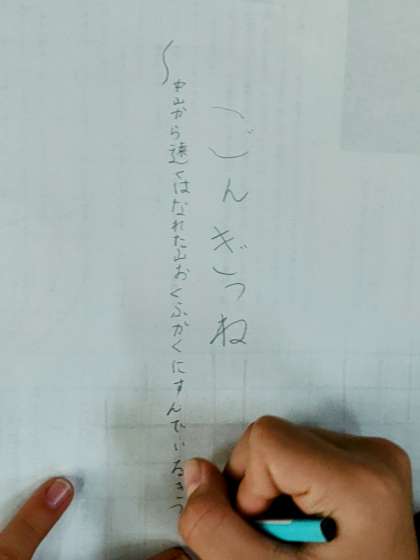 ごんぎつね
〜中山から遠くはなれた山おくふかくにすんでいるきつ